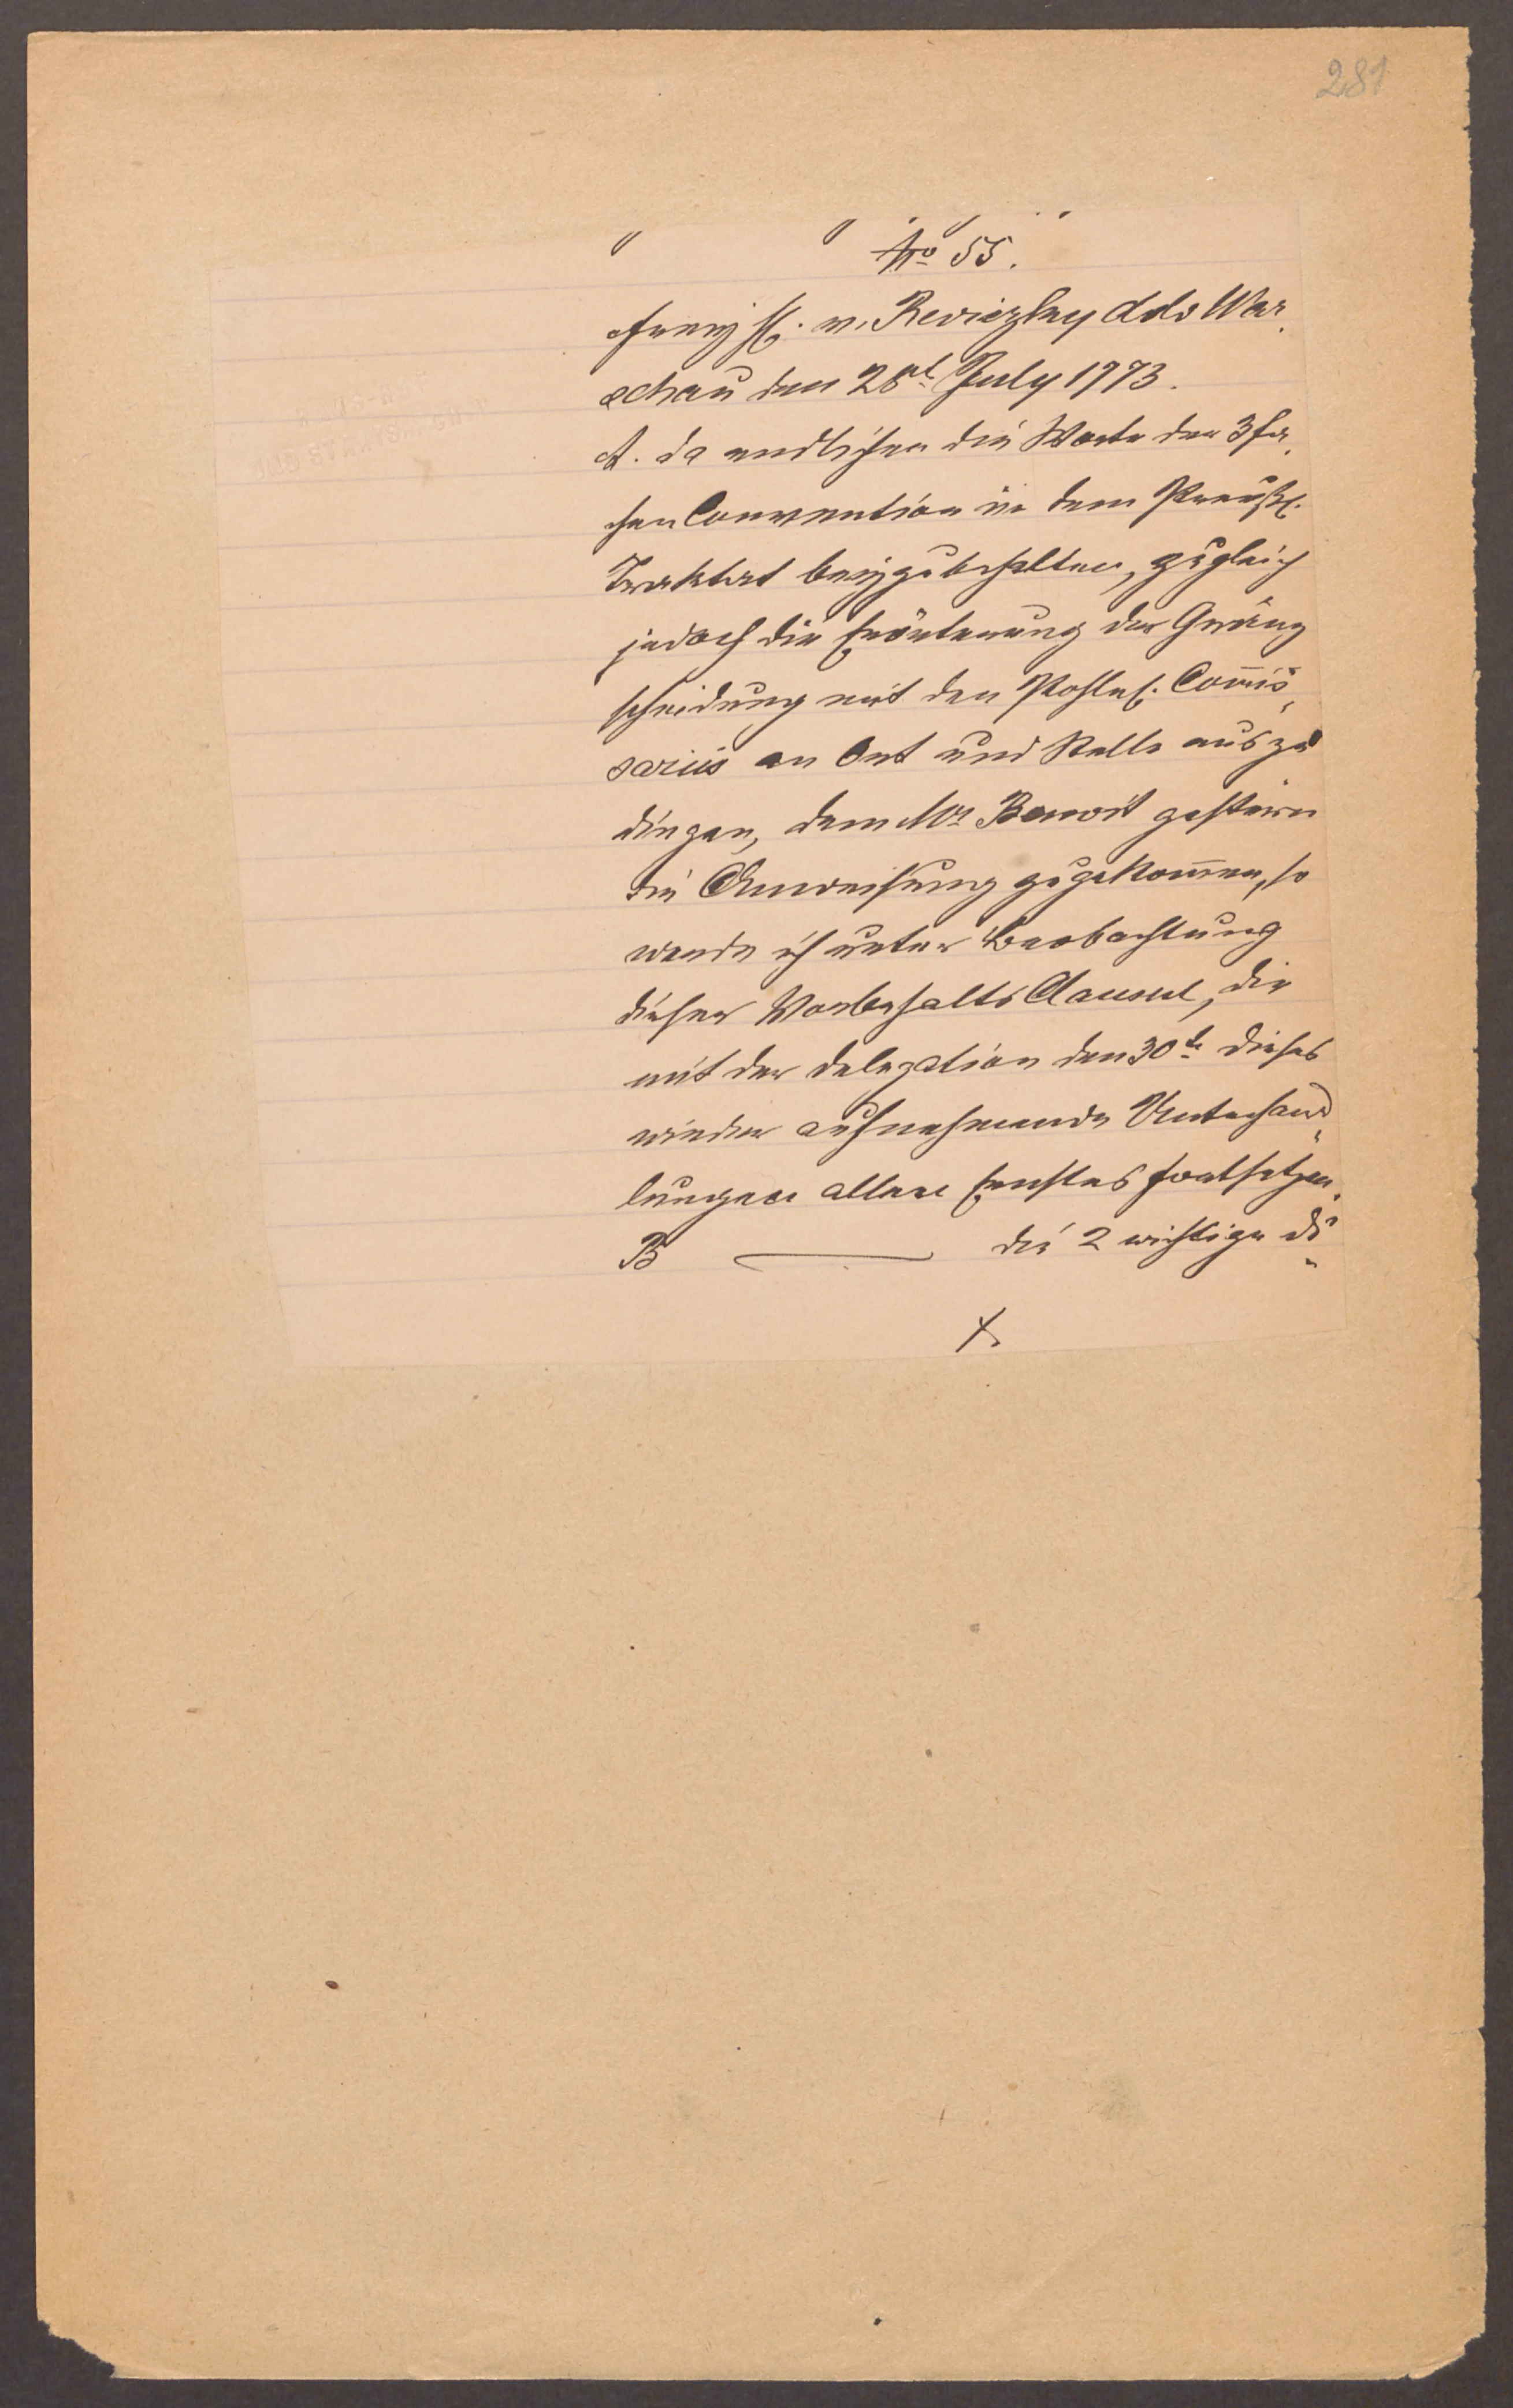 281
" " No 55. "
Freyh. v. Reviczky ddo War„
schau den 28t July 1773.
A. da endlichen die Worte der 3fa„
chen Convention in dem Preußl.
Traktat beyzubehalten, zugleich
jedoch die Erörterung der Gränz
scheidung mit den Pohln. Com̄is„
sariis an Ort und Stelle auszu
dingen, dem Mr Benoit gestern
die Anweisung zugekom̄en, so
werde ich unter Beobachtung
dieser Vorbehalts Clausul, die
mit der Delegation den 30te dieses
wieder aufnehmende Unterhand„
lungen allen Ernstes fortsetzen.
B ——— die 2 wichtige di„